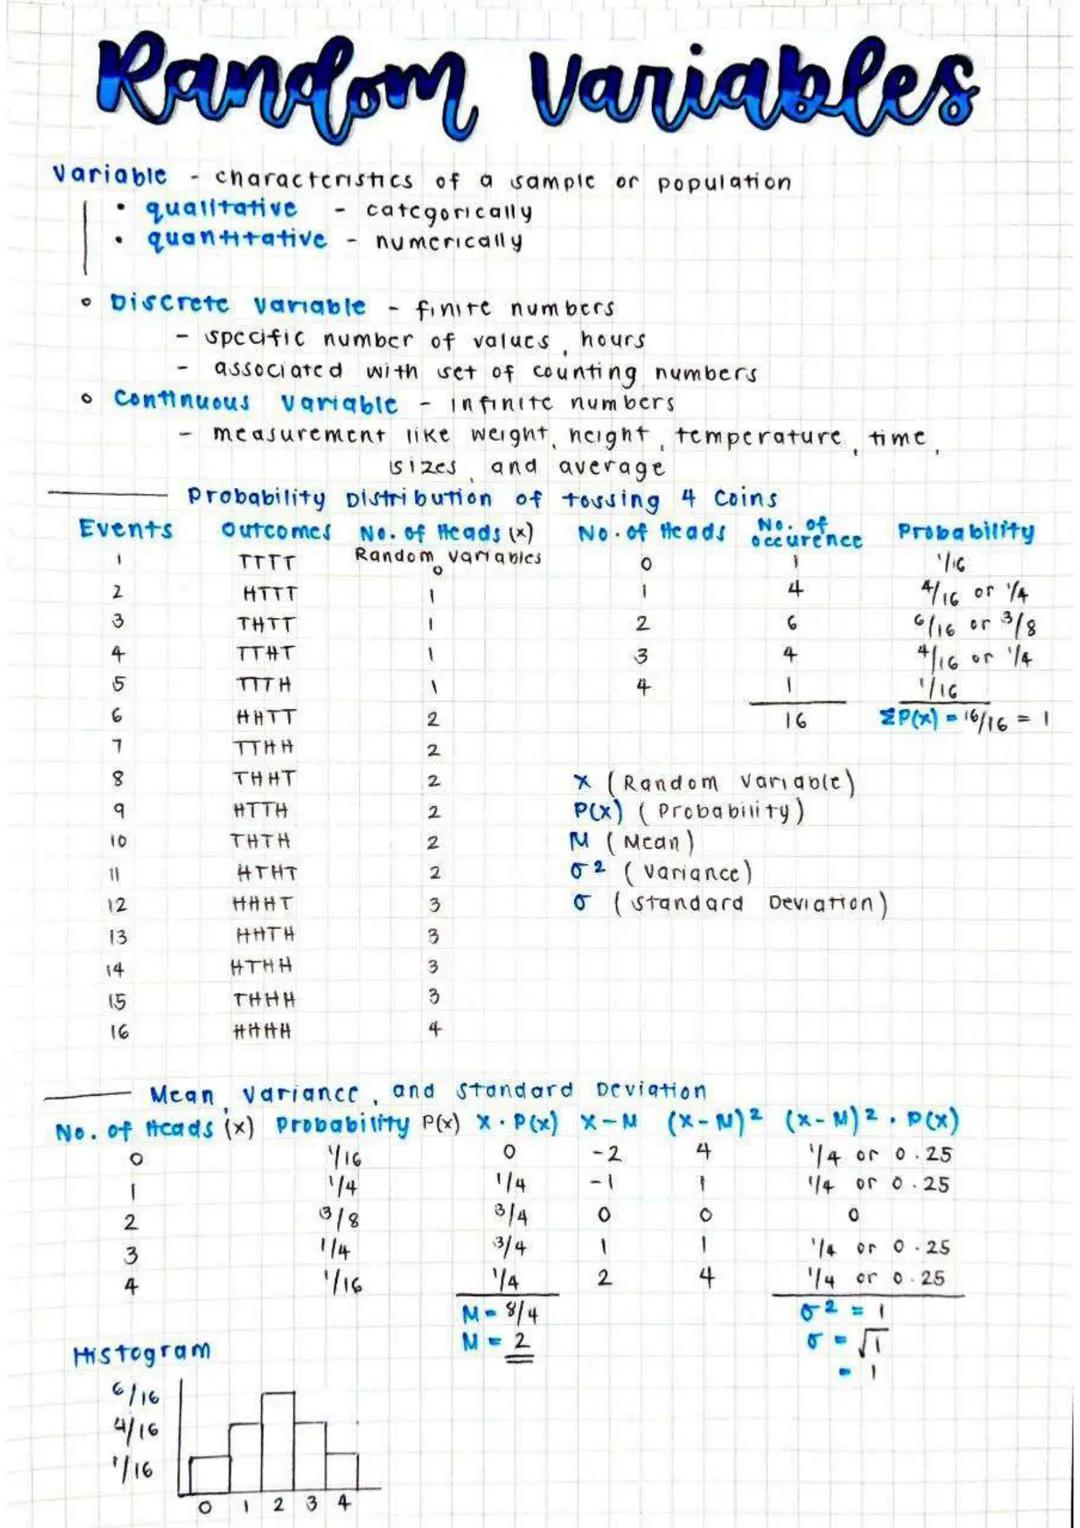 Random Variables
Variable - characteristics of a sample or population
• qualitative - categorically
• quantitative - numerically
◦ Discrete Variable - finite numbers
- specific number of values, hours
- associated with set of counting numbers
◦ Continuous Variable - infinite numbers
- measurement like weight, height, temperature, time,
sizes, and average
Probability Distribution of tossing 4 Coins
Events Outcomes No. of Heads (x) No. of Heads No. of occurence Probability
Random Variables
1 TTTT 0 0 1 1/16
2 HTTT 1 1 4 4/16 or 1/4
3 THTT 1 2 6 6/16 or 3/8
4 TTHT 1 3 4 4/16 or 1/4
5 TTTH 1 4 1 1/16
6 HHTT 2 16 ΣP(x) = 16/16 = 1
7 TTHH 2
8 THHT 2 X (Random Variable)
9 HTTH 2 P(X) (Probability)
10 THTH 2 M (Mean)
11 HTHT 2 σ² (Variance)
12 HHHT 3 σ (Standard Deviation)
13 HHTH 3
14 HTHH 3
15 THHH 3
16 HHHH 4
Mean, Variance, and Standard Deviation
No. of Heads (x) Probability P(x) X · P(x) X - M (X - M)² (X - M)² · P(X)
0 1/16 0 -2 4 1/4 or 0.25
1 1/4 1/4 -1 1 1/4 or 0.25
2 3/8 3/4 0 0 0
3 1/4 3/4 1 1 1/4 or 0.25
4 1/16 1/4 2 4 1/4 or 0.25
M = 8/4 σ² = 1
M = 2 σ = √1
= 1
Histogram
6/16
4/16
1/16
0 1 2 3 4